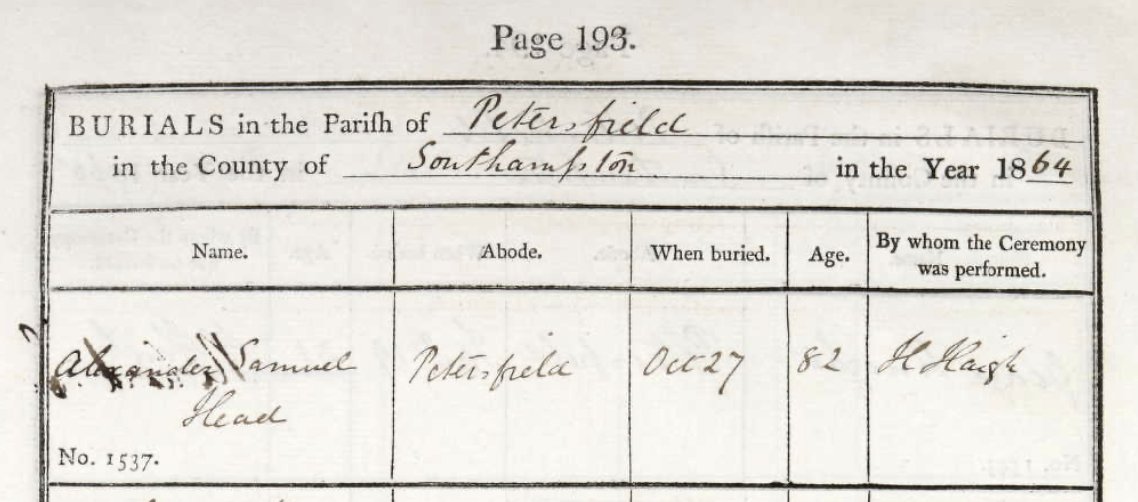 Page 193.
BURIALS in the Pariſh of Petersfield
in the County of Southampton in the Year 1864
Name. Abode. When buried. Age. By whom the Ceremony
was performed.
Alexander Samuel Petersfield Oct 27 82 H Haigh
Head
No. 1537.